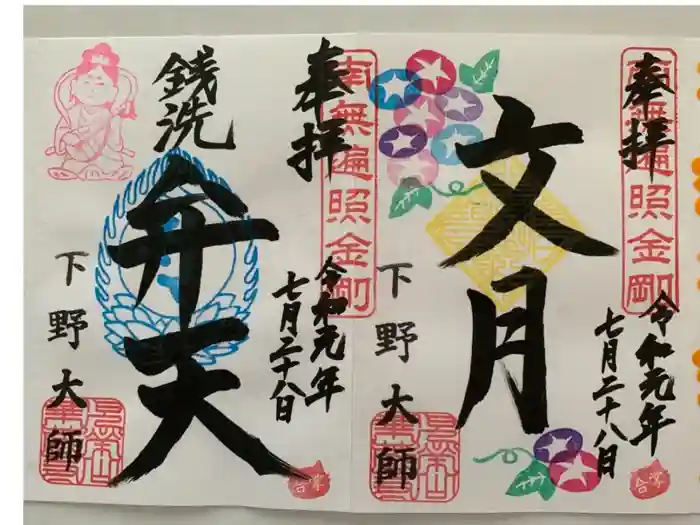 奉拝
南無遍照金剛
令和元年
七月二十八日
文月
下野大師
合掌
奉拝
南無遍照金剛
令和元年
七月二十八日
銭洗
弁天
下野大師
合掌